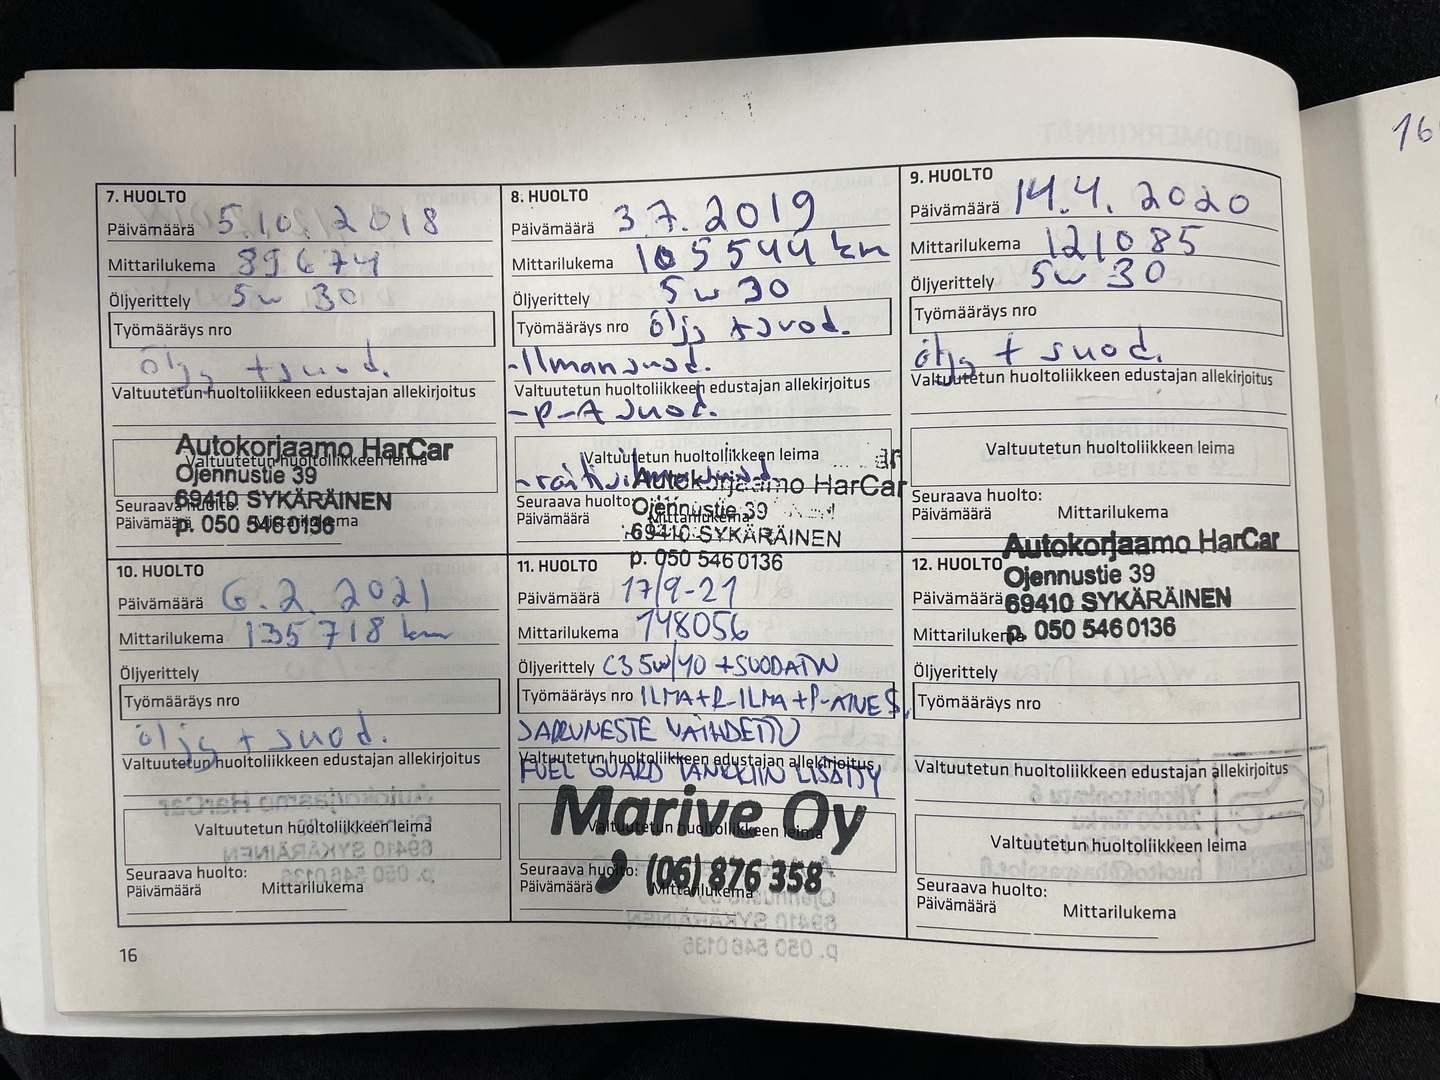 7. HUOLTO
Päivämäärä 5.10.2018
Mittarilukema 89674
Öljyerittely 5w 30
Työmääräys nro
öljy + suod.
Valtuutetun huoltoliikkeen edustajan allekirjoitus
Valtuutetun huoltoliikkeen leima
Autokorjaamo HarCar
Ojennustie 39
69410 SYKÄRÄINEN
p. 050 546 0136
Seuraava huolto:
Päivämäärä Mittarilukema
8. HUOLTO
Päivämäärä 3.7.2019
Mittarilukema 105544 km
Öljyerittely 5w 30
Työmääräys nro öljy + suod.
-Ilmansuod.
Valtuutetun huoltoliikkeen edustajan allekirjoitus
-P-A suod.
Valtuutetun huoltoliikkeen leima
Autokorjaamo HarCar
Ojennustie 39
69410 SYKÄRÄINEN
p. 050 546 0136
Seuraava huolto:
Päivämäärä Mittarilukema
9. HUOLTO
Päivämäärä 14.4.2020
Mittarilukema 121085
Öljyerittely 5w 30
Työmääräys nro
öljy + suod.
Valtuutetun huoltoliikkeen edustajan allekirjoitus
Valtuutetun huoltoliikkeen leima
Seuraava huolto:
Päivämäärä Mittarilukema
Autokorjaamo HarCar
Ojennustie 39
69410 SYKÄRÄINEN
p. 050 546 0136
10. HUOLTO
Päivämäärä 6.2.2021
Mittarilukema 135718 km
Öljyerittely
Työmääräys nro
öljy + suod.
Valtuutetun huoltoliikkeen edustajan allekirjoitus
Valtuutetun huoltoliikkeen leima
Seuraava huolto:
Päivämäärä Mittarilukema
11. HUOLTO
Päivämäärä 17/9-21
Mittarilukema 148056
Öljyerittely C3 5W/40 + SUODATIN
Työmääräys nro ILMA+R-ILMA+P-AINE S,
JARRUNESTE VAIHDETTU
Valtuutetun huoltoliikkeen edustajan allekirjoitus
FUEL GUARD TANKKIIN LISÄTTY
Valtuutetun huoltoliikkeen leima
Marive Oy
(06) 876 358
Seuraava huolto:
Päivämäärä Mittarilukema
12. HUOLTO
Päivämäärä
Mittarilukema
Öljyerittely
Työmääräys nro
Valtuutetun huoltoliikkeen edustajan allekirjoitus
Valtuutetun huoltoliikkeen leima
Seuraava huolto:
Päivämäärä Mittarilukema
16